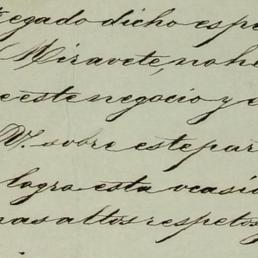 egado dicho espe
Miravete, no he
e este negocio y e
V. sobre este par
logra esta ocasió
mas altos respetos